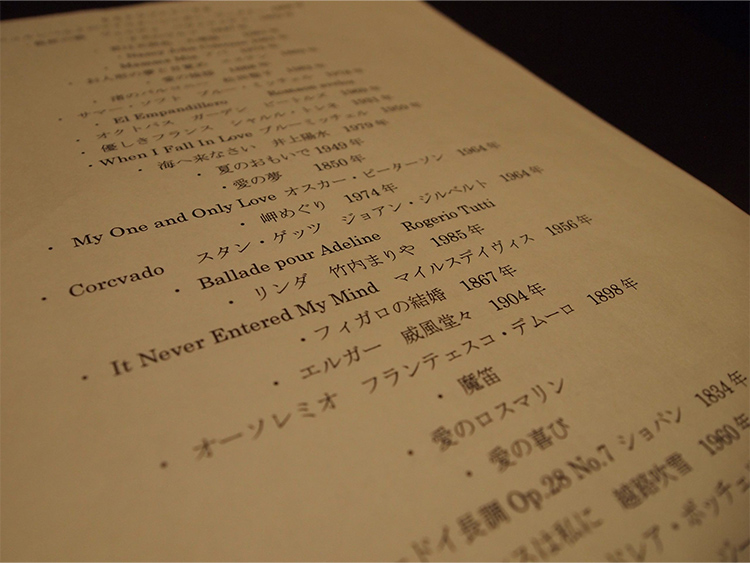 ・お人形の夢と目覚め
・愛の挨拶
・渚のバルコニー 松田聖子
・サマー・ソフト ブルー・ミッチェル
・El Empandillero
・オクトパス ガーデン ビートルズ 1969年
・優しきフランス シャルル・トレネ
・When I Fall In Love ブルーミッチェル 1959年
・海へ来なさい 井上陽水 1979年
・夏のおもいで 1949年
・愛の夢 1850年
・My One and Only Love オスカー・ピーターソン 1964年
・岬めぐり 1974年
・Corcvado スタン・ゲッツ ジョアン・ジルベルト 1964年
・Ballade pour Adeline Rogerio Tutti
・リンダ 竹内まりや 1985年
・It Never Entered My Mind マイルスデイヴィス 1956年
・フィガロの結婚 1867年
・エルガー 威風堂々 1904年
・オーソレミオ フランチェスコ・デムーロ 1898年
・魔笛
・愛のロスマリン
・愛の喜び
ドイ長調 Op.28 No.7 ショパン 1834年
スは私に 越路吹雪 1960年
ドレア・ボッチェ